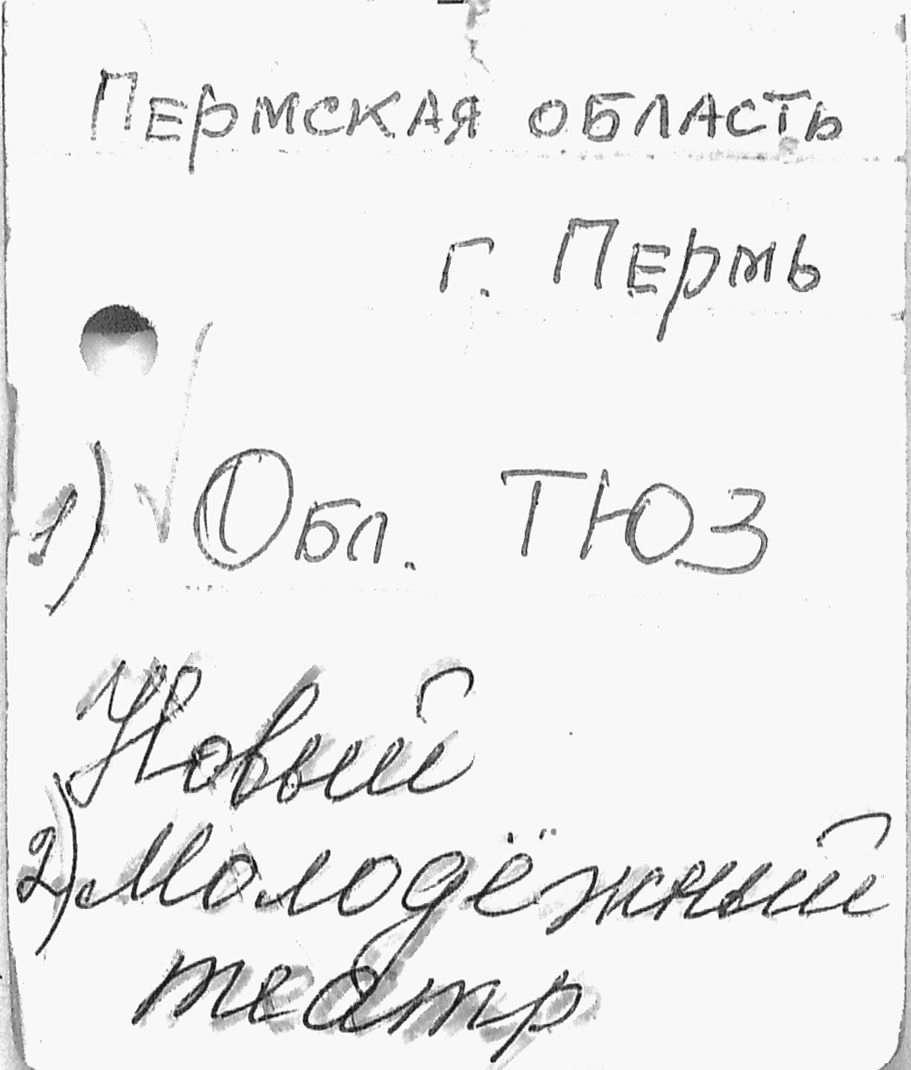 Пермская область
г. Пермь
1) Обл. ТЮЗ
Новый
2) Молодёжный
театр